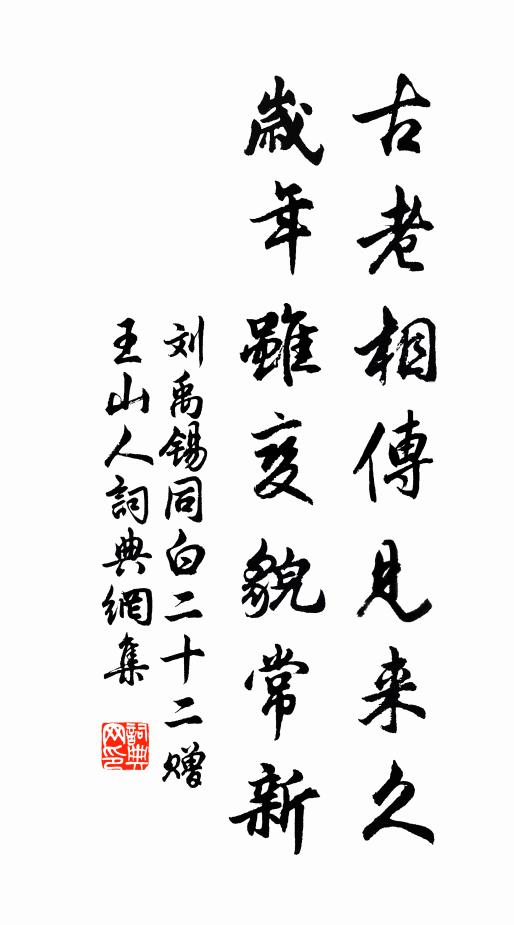 古老相傳見来久
歲年雖变貌常新
刘禹锡同白二十二赠
王山人詞典網集
詞典
网印